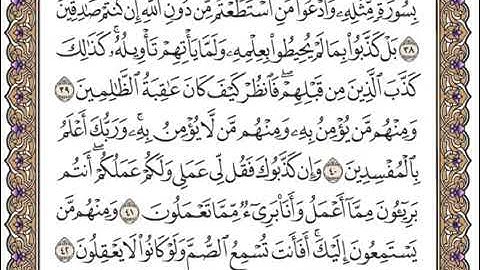 بِسُورَةٍ مِّثْلِهِۦ وَٱدْعُوا۟ مَنِ ٱسْتَطَعْتُم مِّن دُونِ ٱللَّهِ إِن كُنتُمْ صَٰدِقِينَ
٣٨ بَلْ كَذَّبُوا۟ بِمَا لَمْ يُحِيطُوا۟ بِعِلْمِهِۦ وَلَمَّا يَأْتِهِمْ تَأْوِيلُهُۥ ۚ كَذَٰلِكَ
كَذَّبَ ٱلَّذِينَ مِن قَبْلِهِمْ ۖ فَٱنظُرْ كَيْفَ كَانَ عَٰقِبَةُ ٱلظَّٰلِمِينَ ٣٩
وَمِنْهُم مَّن يُؤْمِنُ بِهِۦ وَمِنْهُم مَّن لَّا يُؤْمِنُ بِهِۦ ۚ وَرَبُّكَ أَعْلَمُ
بِٱلْمُفْسِدِينَ ٤٠ وَإِن كَذَّبُوكَ فَقُل لِّى عَمَلِى وَلَكُمْ عَمَلُكُمْ ۖ أَنتُم
بَرِيٓـُٔونَ مِمَّآ أَعْمَلُ وَأَنَا۠ بَرِىٓءٌ مِّمَّا تَعْمَلُونَ ٤١ وَمِنْهُم مَّن
يَسْتَمِعُونَ إِلَيْكَ ۚ أَفَأَنتَ تُسْمِعُ ٱلصُّمَّ وَلَوْ كَانُوا۟ لَا يَعْقِلُونَ ٤٢